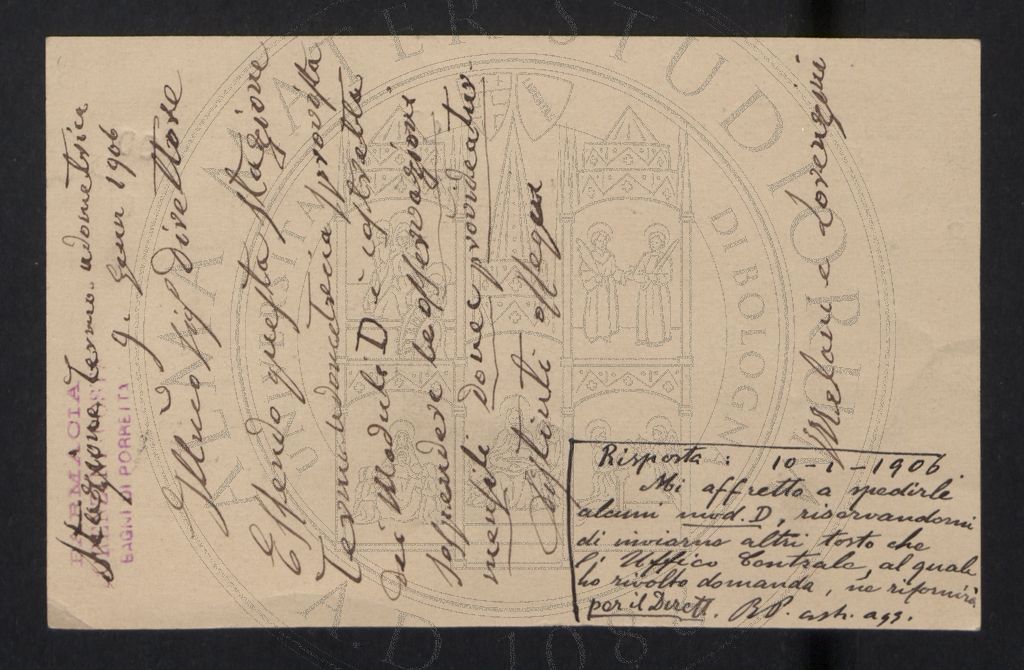 FARMACIA
BAGNI DI PORRETTA
Stazione termo-udometrica
9. Genn 1906
Illmo Sig Direttore
Essendo questa Stazione
Termoudometrica sprovvista
dei Moduli D è costretta
sospendere le osservazioni
mensili dove provvedeatur
Distinti ossequi
Melani e Lorenzini
Risposta: 10-1-1906
Mi affretto a spedirle
alcuni mod. D, riservandomi
di inviarne altri tosto che
l'Ufficio Centrale, al quale
ho rivolto domanda, ne rifornirà
per il Dirett. R.P. ash. ags.
ALMA MATER STUDIORUM
UNIVERSITÀ DI BOLOGNA
A.D. 1088
LIBERTAS